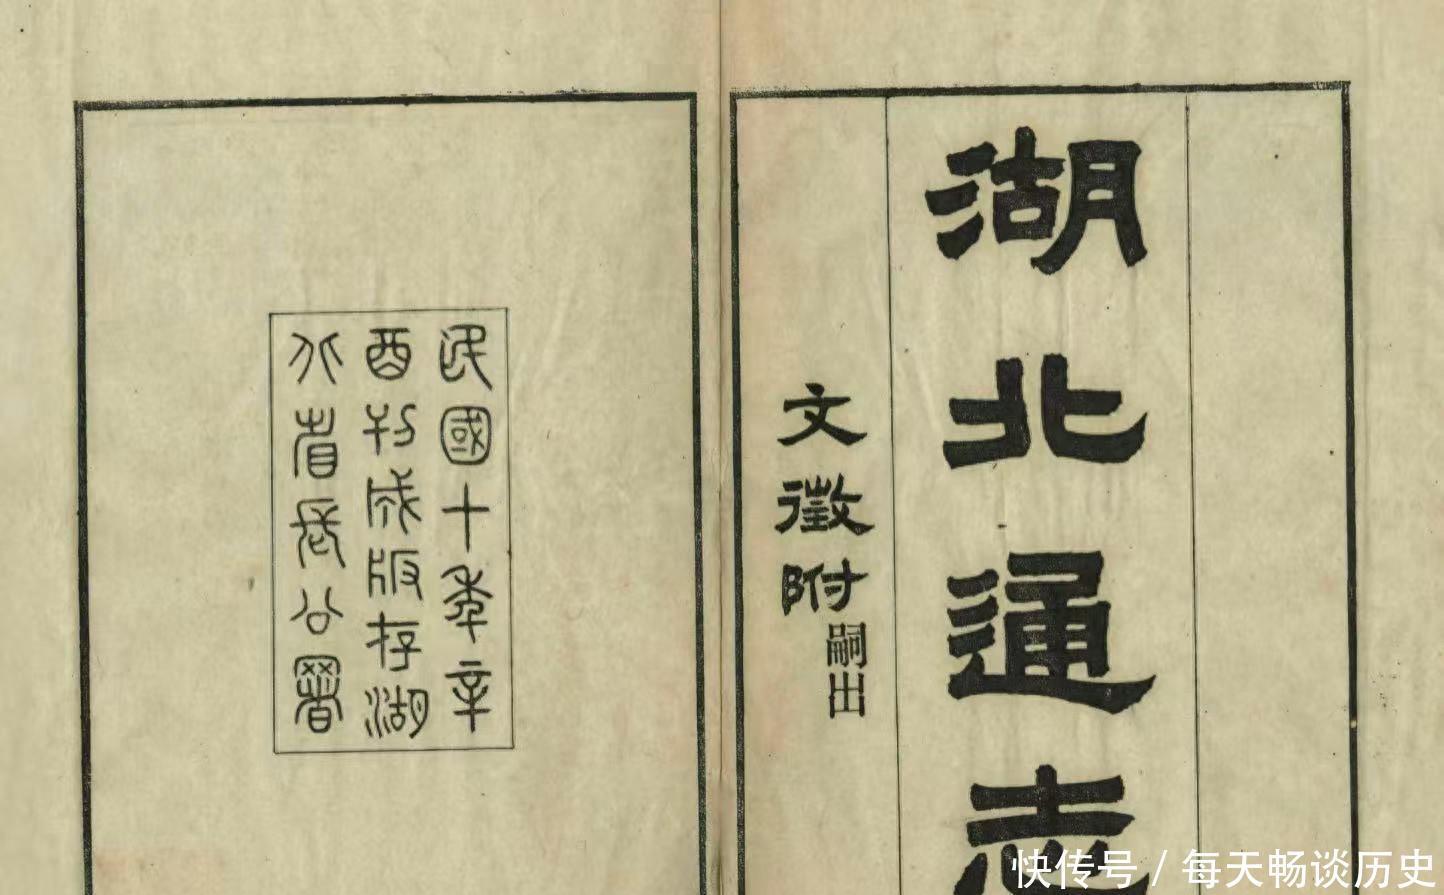 湖北通志
文徵附嗣出
民國十年辛
酉刊成版存湖
北省長公署
快传号 / 每天畅谈历史